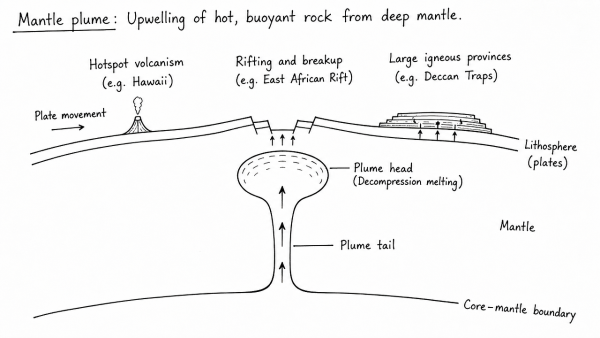 Mantle plume: Upwelling of hot, buoyant rock from deep mantle.
Hotspot volcanism
(e.g. Hawaii)
Rifting and breakup
(e.g. East African Rift)
Large igneous provinces
(e.g. Deccan Traps)
Plate movement
Lithosphere
(plates)
Plume head
(Decompression melting)
Mantle
Plume tail
Core-mantle boundary